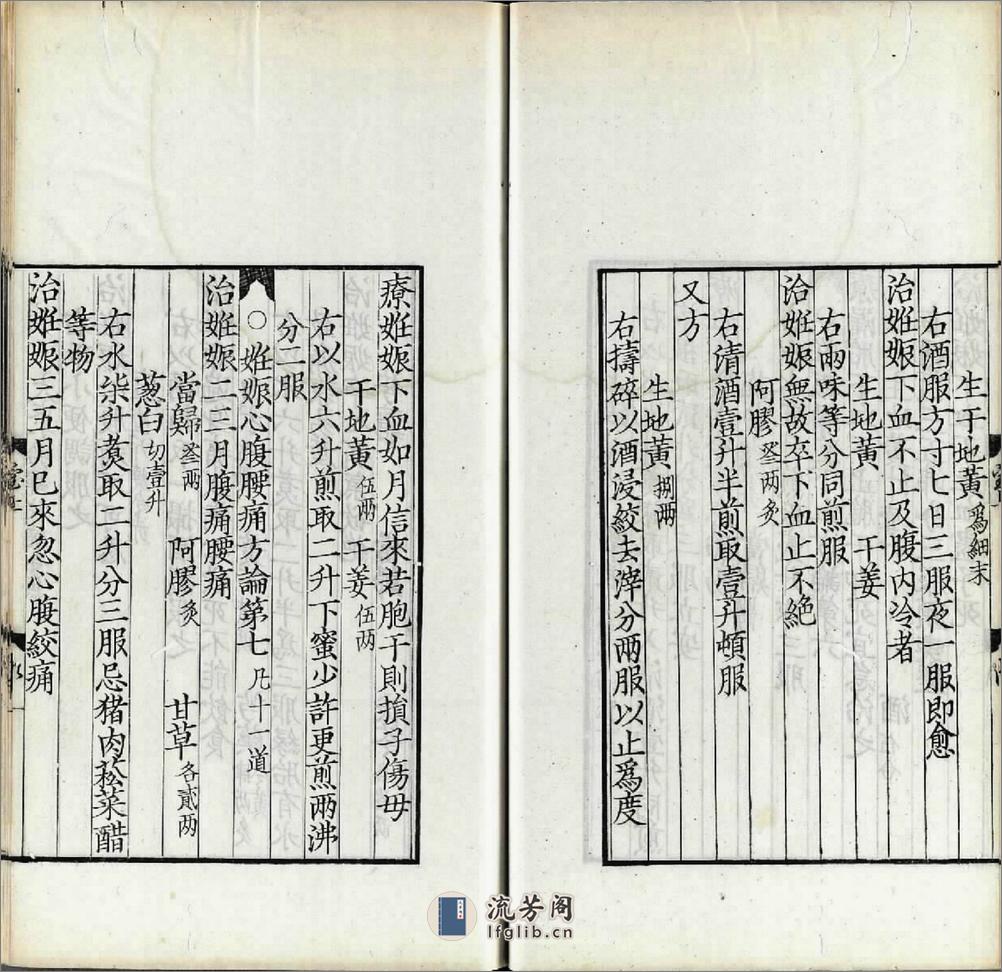 生干地黄爲細末
右酒服方寸七日三服夜一服即愈
治姙娠下血不止及腹内冷者
生地黄 干姜
右兩味等分同煎服
治姙娠無故卒下血止不絶
阿膠叁两炙
右清酒壹升半煎取壹升頓服
又方
生地黄捌兩
右擣碎以酒浸絞去滓分兩服以止爲度
療姙娠下血如月信來若胞干則損子傷毋
干地黄伍兩 干姜伍两
右以水六升煎取二升下蜜少許更煎兩沸
分二服
○姙娠心腹腰痛方論第七凡十一道
治姙娠二三月腹痛腰痛
當歸叁兩 阿膠炙 甘草各貳两
葱白切壹升
右水柒升煑取二升分三服忌猪肉菘菜醋
等物
治姙娠三五月巳來忽心腹絞痛
流芳阁
lfglib.cn